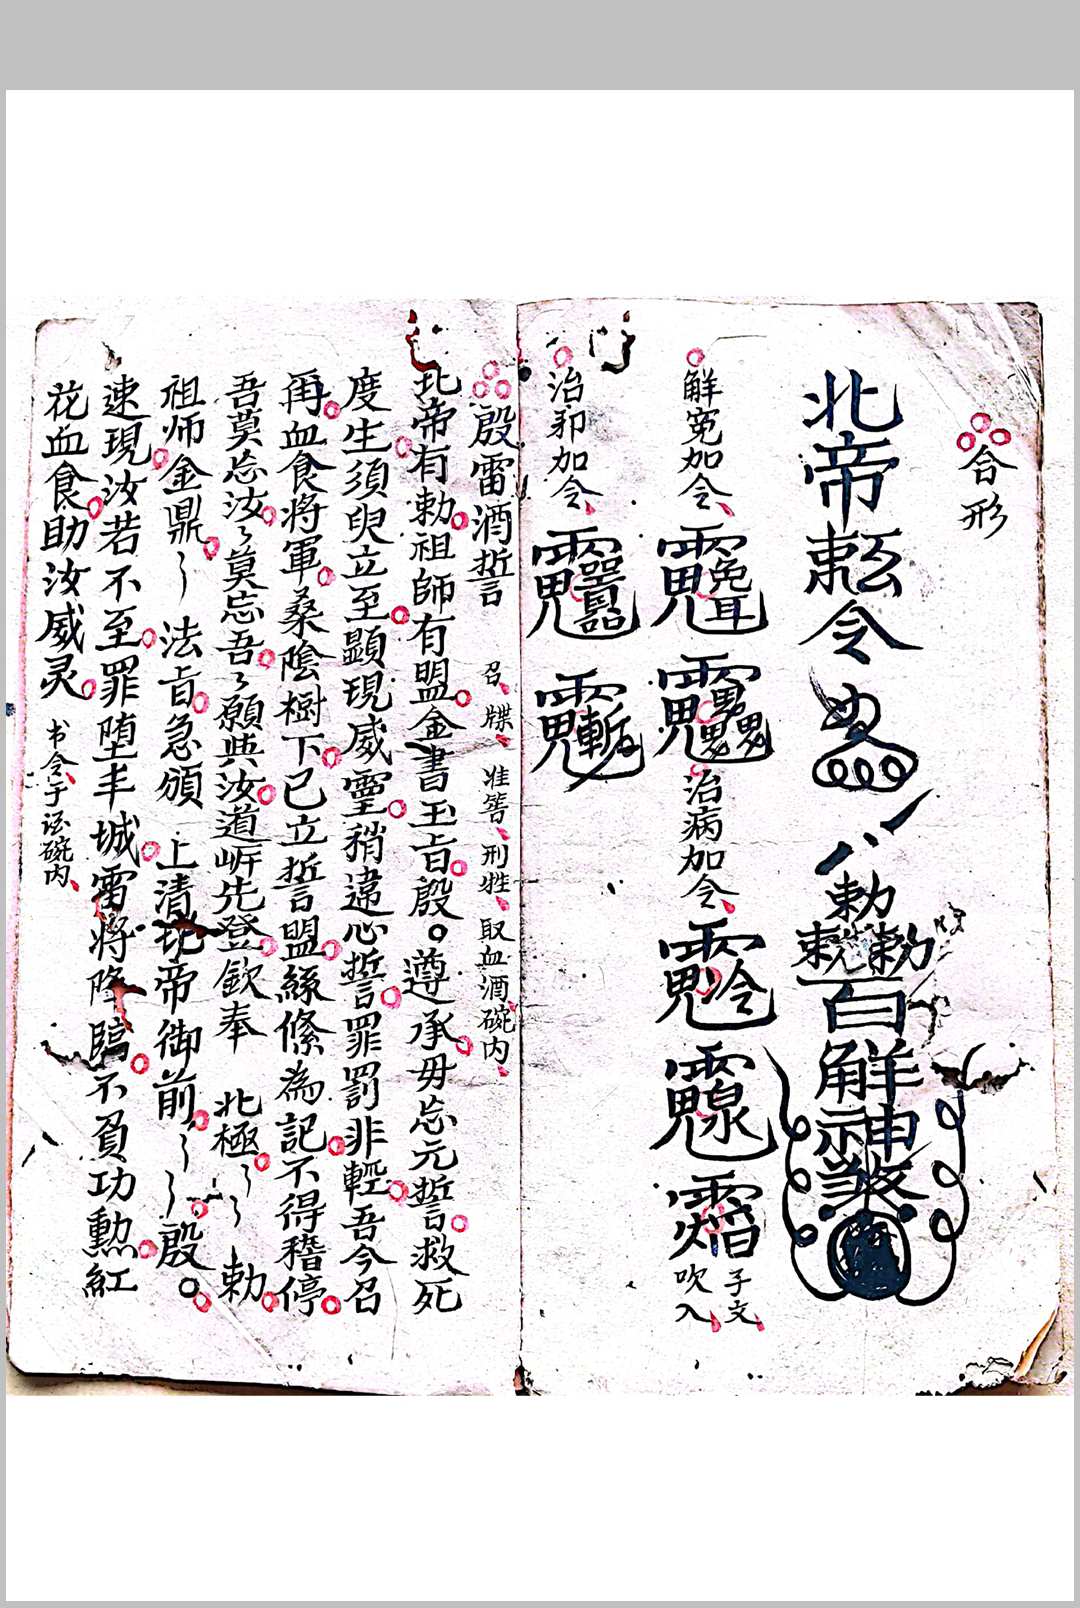 合形
北帝敕令
勅
勅 勅
百解神
解冤加令
治病加令
子文
吹入
治邪加令
殷雷酒誓 召牒准筶刑牲取血酒碗内
北帝有勅祖師有盟金書玉旨殷○遵承毋忘元誓救死
度生須臾立至顯現威靈稍違心誓罪罰非輕吾今召
再血食将軍桑陰樹下已立誓盟絲絛為記不得稽停
吾莫忘汝〻莫忘吾〻願與汝道岸先登欽奉 北極〻〻勅
祖师金鼎〻法旨急頒 上清北帝御前〻〻殷○
速現汝若不至罪堕丰城雷将隆臨不負功勳紅
花血食助汝威灵 书令于酒碗内